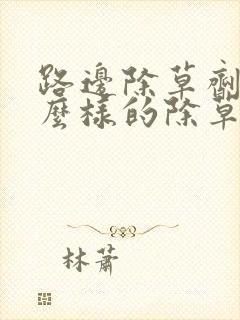 路邊除草劑
麼樣的除草
林蕭